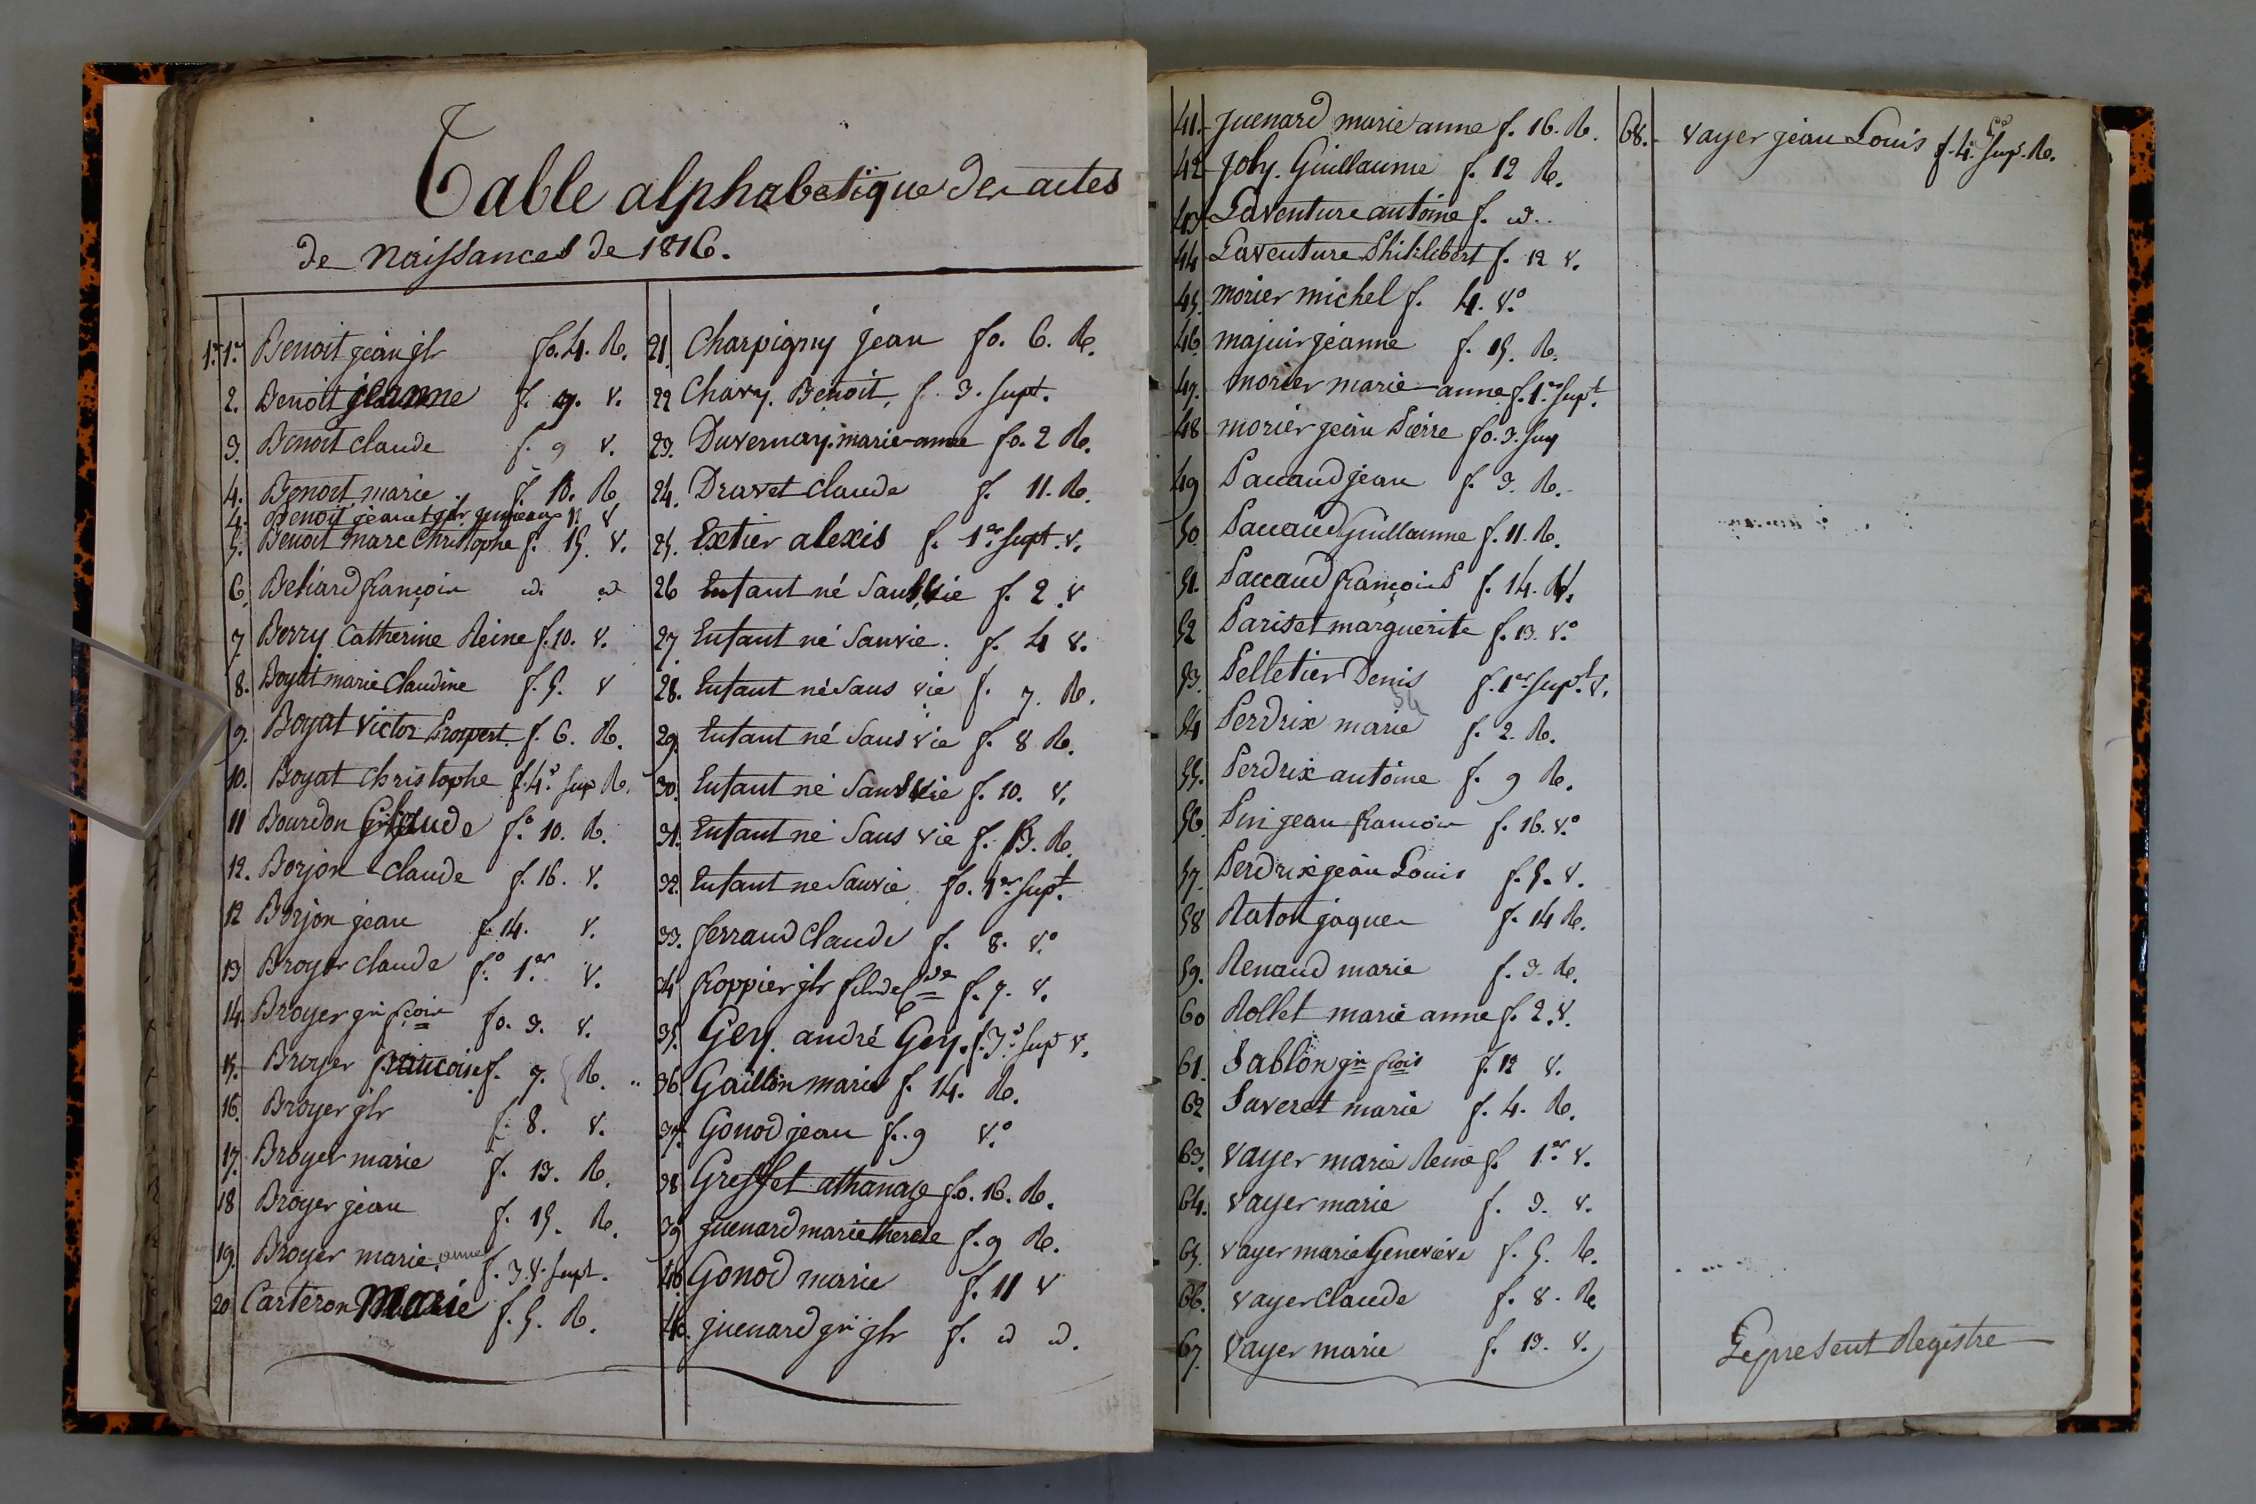 Table alphabetique des actes
de Naissances de 1816.
1.er 1.er Benoit jean jh fo. 4. R.
2. Benoit jeanne f. 7. v.
3. Benoit claude f. 9 v.
4. Benoit marie f. 10. R
4. Benoit jean et jh jumeaux 11 v
5. Benoit marc christophe f. 15. v.
6. Beliard françois id. id
7 Berry Catherine Reine f. 10. v.
8. Boyat marie Claudine f. 5. v
9. Boyat victor Prospert. f. 6. R.
10. Boyat christophe f. 4. sup R.
11 Bourdon Claude f.o 10. R.
12. Borjon claude f. 16. v.
12 Borjon jean f. 14. v.
13 Broyer claude f.o 1.er v.
14. Broyer pre fçois fo. 3. v.
15. Broyer francoise f. 7. R.
16. Broyer jh f. 8. v.
17. Broyer marie f. 13. R.
18 Broyer jean f. 15. R.
19. Broyer marie anne f. 3. v. supt.
20 Carteron Marie f. 5. R.
21. Charpigny jean fo. 6. R.
22 Chavy. Benoit, f. 3. supt.
23. Duvernay. marie-anne fo. 2 R.
24. Dravet claude f. 11. R.
25. Extier alexis f. 1.er supt. v.
26 Enfant né Sans vie f. 2. v
27. Enfant né Sanvie. f. 4 v.
28. Enfant né Sans vie f. 7. R.
29. Enfant né Sans vie f. 8 R.
30. Enfant né Sans vie f. 10. v.
31. Enfant né Sans vie f. 13. R.
32. Enfant ne Sanvie fo. 1.er supt.
33. ferraud Claude f. 8. v.o
34 froppier jh f. 7. v.
35. Gey. andré Gey. f. 3.s sup v.
36. Gaillon marie f. 14. R.
37. Gonod jean f. 9 v.o
38. Greffet athanaze fo. 16. R.
39 juenard marie therese f. 9 R.
40. Gonod marie f. 11 v
40. juenard pre jh f. id id.
41. juenard marie anne f. 16. R.
42 joly. Guillaume f. 12 R.
43 Laventure antoine f. id.
44 Laventure Philibert f. 12 v.
45. morier michel f. 4. v.o
46. majuir jeanne f. 15. R.
47. morier marie-anne f. 1.er supt.
48 morier jean Pierre fo. 3. sup
49 Paccaud jean f. 3. R.
50. Paccaud Guillaume f. 11. R.
51. Paccaud françois f. 14.
52 Pariset marguerite f. 13. v.o
53. Pelletier Denis f. 1.er supt. v.
54 Perdrix marie f. 2. R.
55. Perdrix antoine f. 9 R.
56. Pin jean francois f. 16. v.o
57. Perdrix jean Louis f. 5. v.
58 Raton jaques f. 14 R.
59. Renaud marie f. 3. R.
60 Rollet marie anne f. 2. v.
61. Sablon pre fcois f. 12 v.
62 Saveret marie f. 4. R.
63. vayer marie Reine f. 1.er v.
64. vayer marie f. 3. v.
65. vayer marie Genevieve f. 5. R.
66. vayer claude f. 8. R
67. vayer marie f. 13. v.
68. vayer jean Louis f. 4. sup. R.
Le present Registre